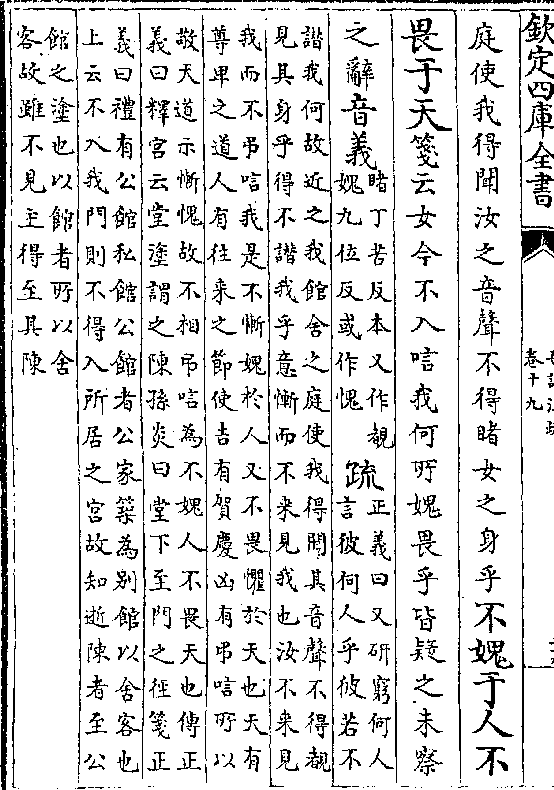 欽定四庫全書
卷十九
庭使我得聞汝之音聲不得睹女之身乎不媿于人不
畏于天箋云女今不入唁我何所媿畏乎皆疑之未察
之辭音義睹丁苦反本又作覩
媿九位反或作愧
疏正義曰又研窮何人
言彼何人乎彼若不
譖我何故近之我館舍之庭使我得聞其音聲不得覩
見其身乎得不譖我乎意慚而不来見我也汝不来見
我而不弔唁我是不慚媿於人又不畏懼於天也天有
尊卑之道人有往来之節使吉有賀慶凶有弔唁所以
敬天道示慚愧故不相弔唁為不媿人不畏天也傳正
義曰釋宫云堂塗謂之陳孫炎曰堂下至門之徑箋正
義曰禮有公館私館公館者公家築為别館以舍客也
上云不入我門則不得入所居之宫故知逝陳者至公
館之塗也以館者所以舍
客故雖不見主得至其陳